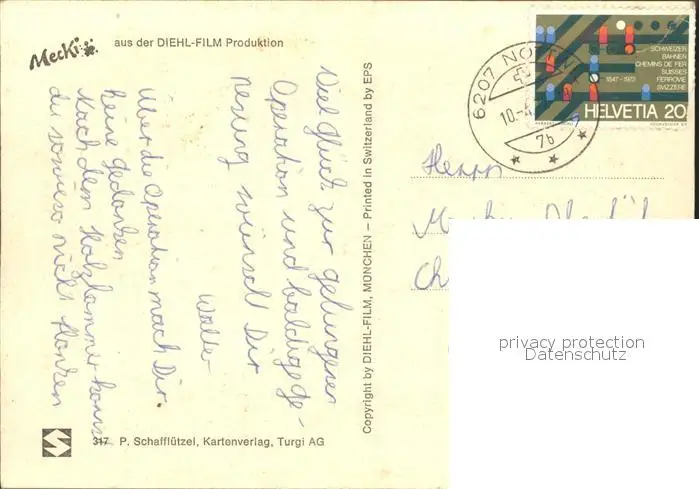 Mecki
aus der DIEHL-FILM Produktion
Viel Glück zur gelungenen
Operation und baldige Ge-
nesung wünscht Dir
Walter
Über die Operation mach Dir
keine Gedanken
Nach dem Holzhammer kannst
du sowieso nicht
317 P. Schafflützel, Kartenverlag, Turgi AG
Copyright by DIEHL-FILM, MÜNCHEN – Printed in Switzerland by EPS
6207 NO
10.
7b
SCHWEIZER
BAHNEN
CHEMINS DE FER
SUISSES
FERROVIE
SVIZZERE
1847-1972
HELVETIA 20
Herrn
privacy protection
Datenschutz